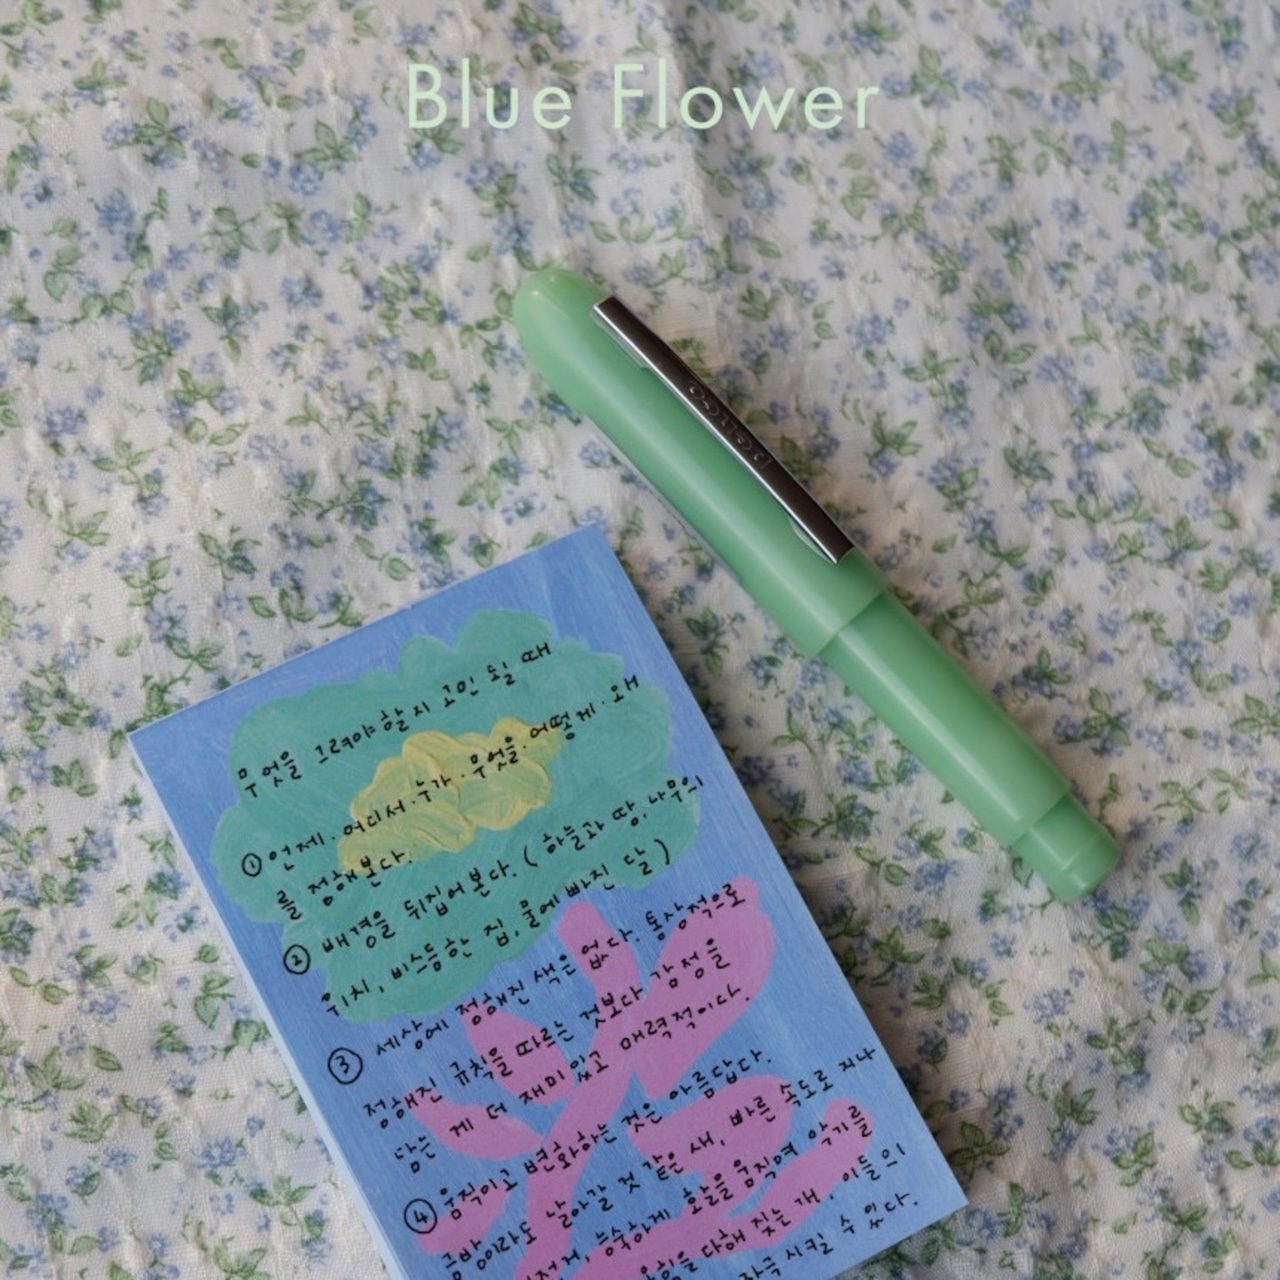 Blue Flower
penco
무엇을 그려야 할지 고민 될 때
① 언제·어디서·누가·무엇을·어떻게·왜
를 정해본다.
② 배경을 뒤집어 본다. (하늘과 땅, 나무의
위치, 비스듬한 집, 물에 빠진 달)
③ 세상에 정해진 색은 없다. 통상적으로
정해진 규칙을 따르는 것보다 감정을
담는 게 더 재미있고 매력적이다.
④ 움직이고 변화하는 것은 아름답다.
금방이라도 날아갈 것 같은 새, 빠른 속도로 지나
능숙하게 활을 움직여 악기를
힘을 다해 짖는 개. 이들의
자극 시킬 수 있다.